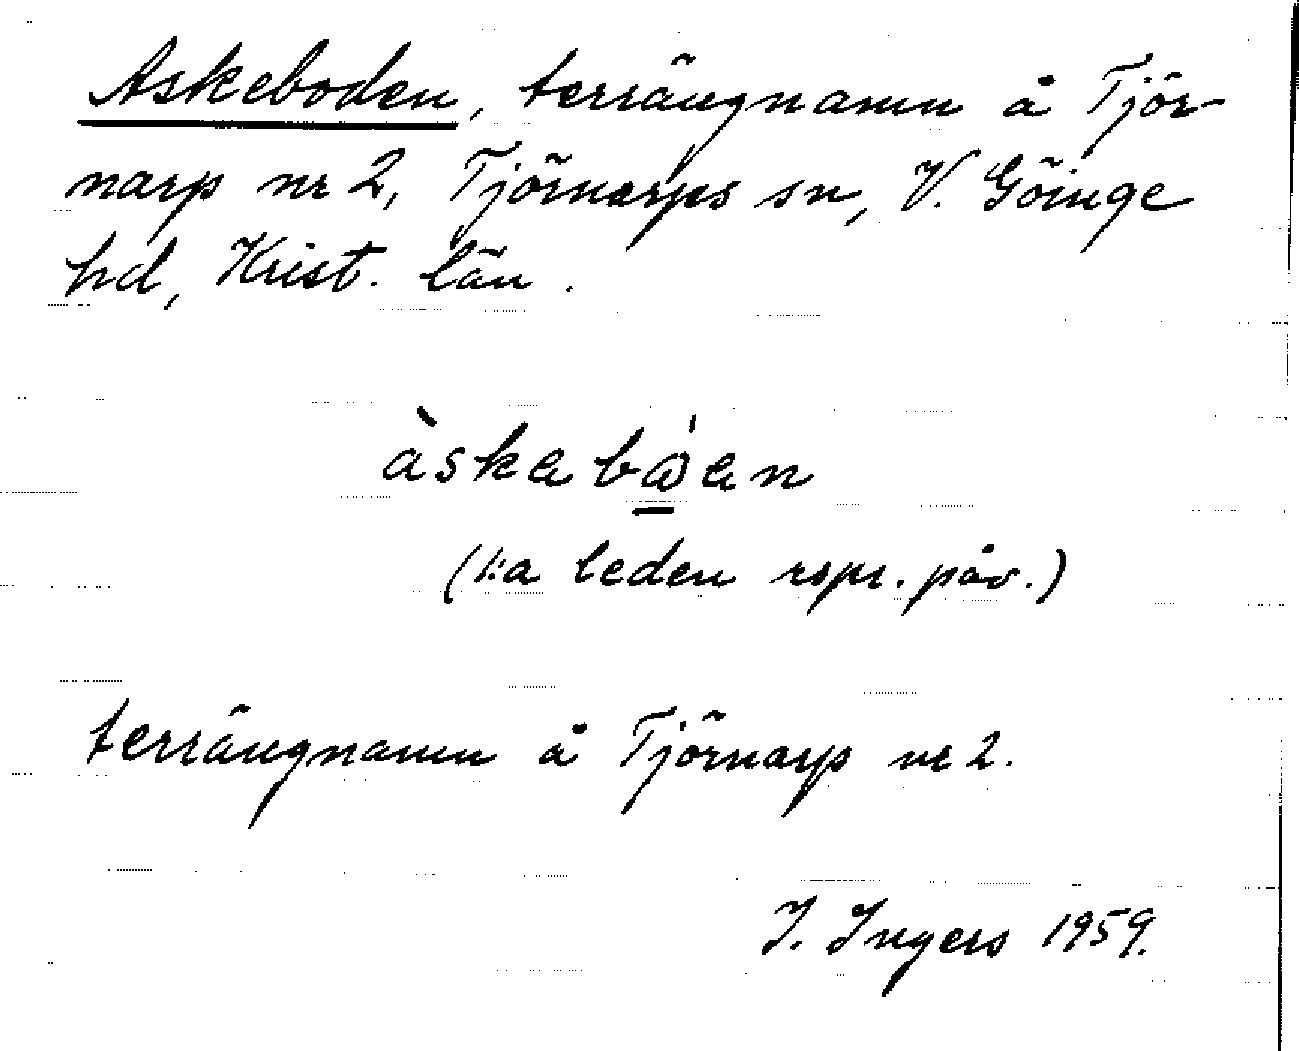 Askeboden, terrängnamn å Tjör-
narp nr 2, Tjörnarps sn, V. Göinge
hd, Krist. län.
(1:a leden uspr. påv.)
terrängnamn å Tjörnarp nr 2.
I. Ingers 1959.